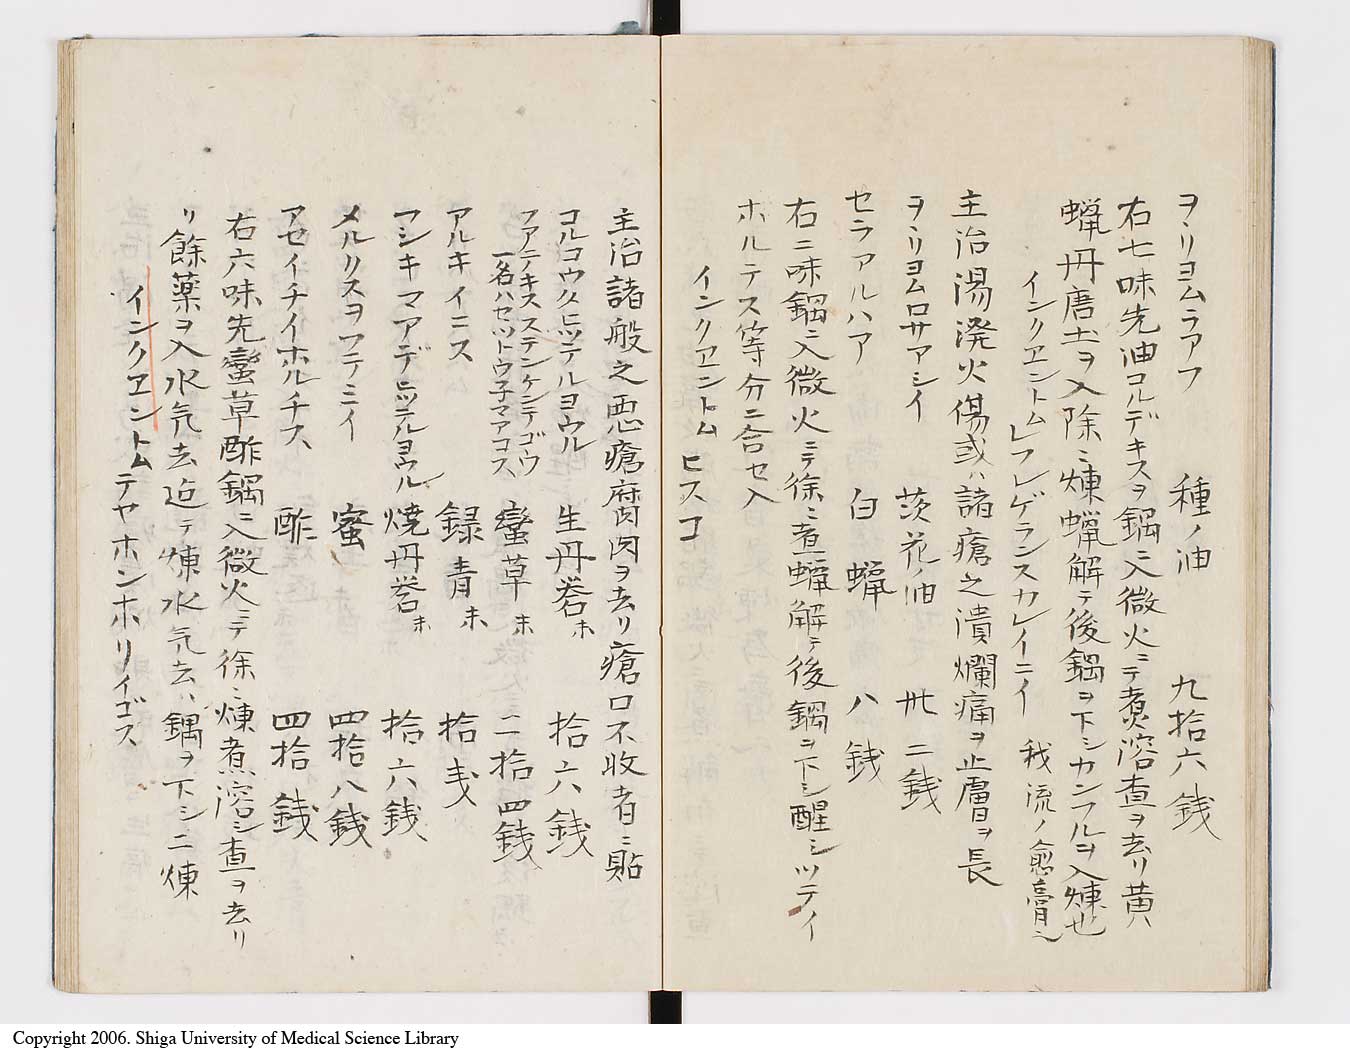 ヲヽリヨムラアフ 種ノ油 九拾六銭
右七味先油コルデキスヲ鍋ニ入微火ニテ煮溶査ヲ去リ黄
蝋丹唐土ヲ入除ミ煉蝋解テ後鍋ヲ下シカンフルヲ入煉也
インクヱントム レフレゲランスカレイニイ 我流ノ愈膏
主治湯溌火傷或ハ諸瘡之潰爛痛ヲ止膚ヲ長
ヲヽリヨムロサアシイ 茨花ノ油 卅二銭
セラアルハア 白蝋 八銭
右二味鍋ニ入微火ニテ徐ミ煮蝋解テ後鍋ヲ下シ醒シツテイ
ホルテス等分ニ合セ入
インクヱントム ヒスコ
主治諸般之悪瘡腐肉ヲ去リ瘡口不收者ニ貼
コルコウタヒツテルヨウル 生丹礬末 拾六銭
フアテノキスステンケンテゴウ 蠻草末 二拾四銭
一名ハセツトウ子マアコス
アルキイニス 録青末 拾戔
マシキマアデヒツテルヨウル 焼丹礬末 拾六銭
メルリスヲフテミイ 蜜 四拾八銭
アセイチイホルチス 酢 四拾銭
右六味先蠻草酢鍋ニ入微火ニテ徐ミ煉煮溶シ査ヲ去リ
リ餘薬ヲ入水気去迄テ煉水気去ハ鍋ヲ下シ二煉
インクヱントム テヤホンホリイゴス
Copyright 2006. Shiga University of Medical Science Library